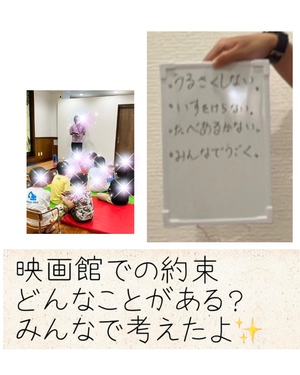 ・うるさくしない。
・いすをけらない。
・たべあるかない。
・みんなでうごく。
映画館での約束
どんなことがある?
みんなで考えたよ✨